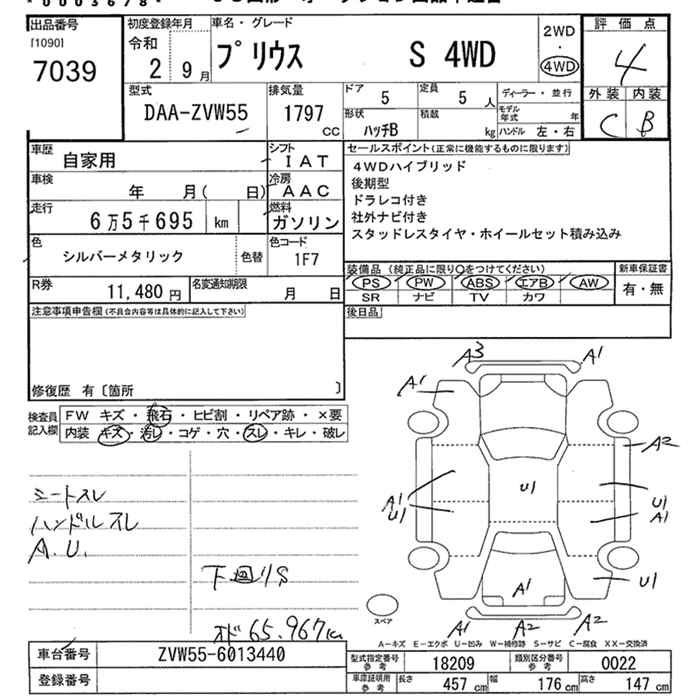 出品番号
[1090]
7039
初度登録年月
令和
2 9月
車名・グレード
プリウス S 4WD
2WD
・
4WD
評価点
4
外装 内装
C B
型式
DAA-ZVW55
排気量
1797
CC
ドア
5
定員
5 人
ディーラー・並行
形状
ハッチB
積載
kg
モデル年式 年
ハンドル 左・右
車歴
自家用
シフト
I A T
車検
年 月( 日)
冷房
A A C
走行
6万5千695 km
燃料
ガソリン
色
シルバーメタリック
色替
色コード
1F7
R券
11,480 円
名変通知期限
月 日
セールスポイント(正常に機能するものに限ります)
4WDハイブリッド
後期型
ドラレコ付き
社外ナビ付き
スタッドレスタイヤ・ホイールセット積み込み
装備品 (純正品に限り○をつけてください)
新車保証書
PS PW ABS エアB AW
有・無
SR ナビ TV カワ
後日品
注意事項申告欄(不具合内容等は具体的に記入して下さい)
修復歴 有〔箇所 〕
検査員
記入欄
FW キズ・飛石・ヒビ割・リペア跡・×要
内装 キズ・汚レ・コゲ・穴・スレ・キレ・破レ
シートスレ
ハンドルスレ
A.U.
下回りS
オド65,967km
A3
A1
A1
A2
A1
U1
U1
U1
A1
A1
U1
A1
A2
A2
スペア
A-キズ E-エクボ U-凹み W-補修跡 S-サビ C-腐食 XX-交換済
車台番号
ZVW55-6013440
登録番号
型式指定番号
参考
18209
類別区分番号
参考
0022
車庫証明用
参考
長さ
457 cm
幅
176 cm
高さ
147 cm